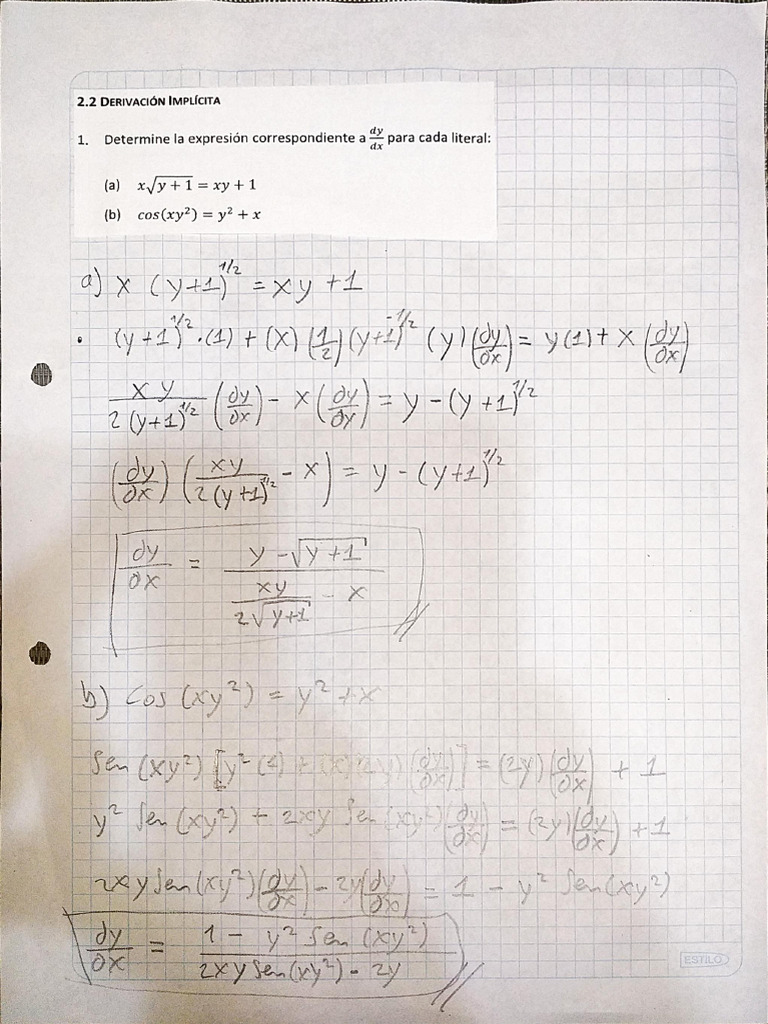 2.2 DERIVACIÓN IMPLÍCITA
1. Determine la expresión correspondiente a dy/dx para cada literal:
(a) x√(y + 1) = xy + 1
(b) cos(xy²) = y² + x
a) x (y+1)^1/2 = xy + 1
• (y+1)^1/2 · (1) + (x) (1/2) (y+1)^-1/2 (y) (dy/∂x) = y(1) + x (dy/∂x)
xy / 2(y+1)^1/2 (dy/∂x) - x (dy/∂y) = y - (y+1)^1/2
(dy/∂x) (xy / 2(y+1)^1/2 - x) = y - (y+1)^1/2
dy/∂x = (y - √(y+1)) / (xy / 2√(y+1) - x)
b) Cos (xy²) = y² + x
Sen (xy²) [y² (1) + (x)(2y) (dy/∂x)] = (2y) (dy/∂x) + 1
y² Sen (xy²) + 2xy Sen (xy²) (dy/∂x) = (2y) (dy/∂x) + 1
2xy Sen (xy²) (dy/∂x) - 2y (dy/∂x) = 1 - y² Sen (xy²)
dy/∂x = (1 - y² Sen (xy²)) / (2xy Sen (xy²) - 2y)
ESTILO